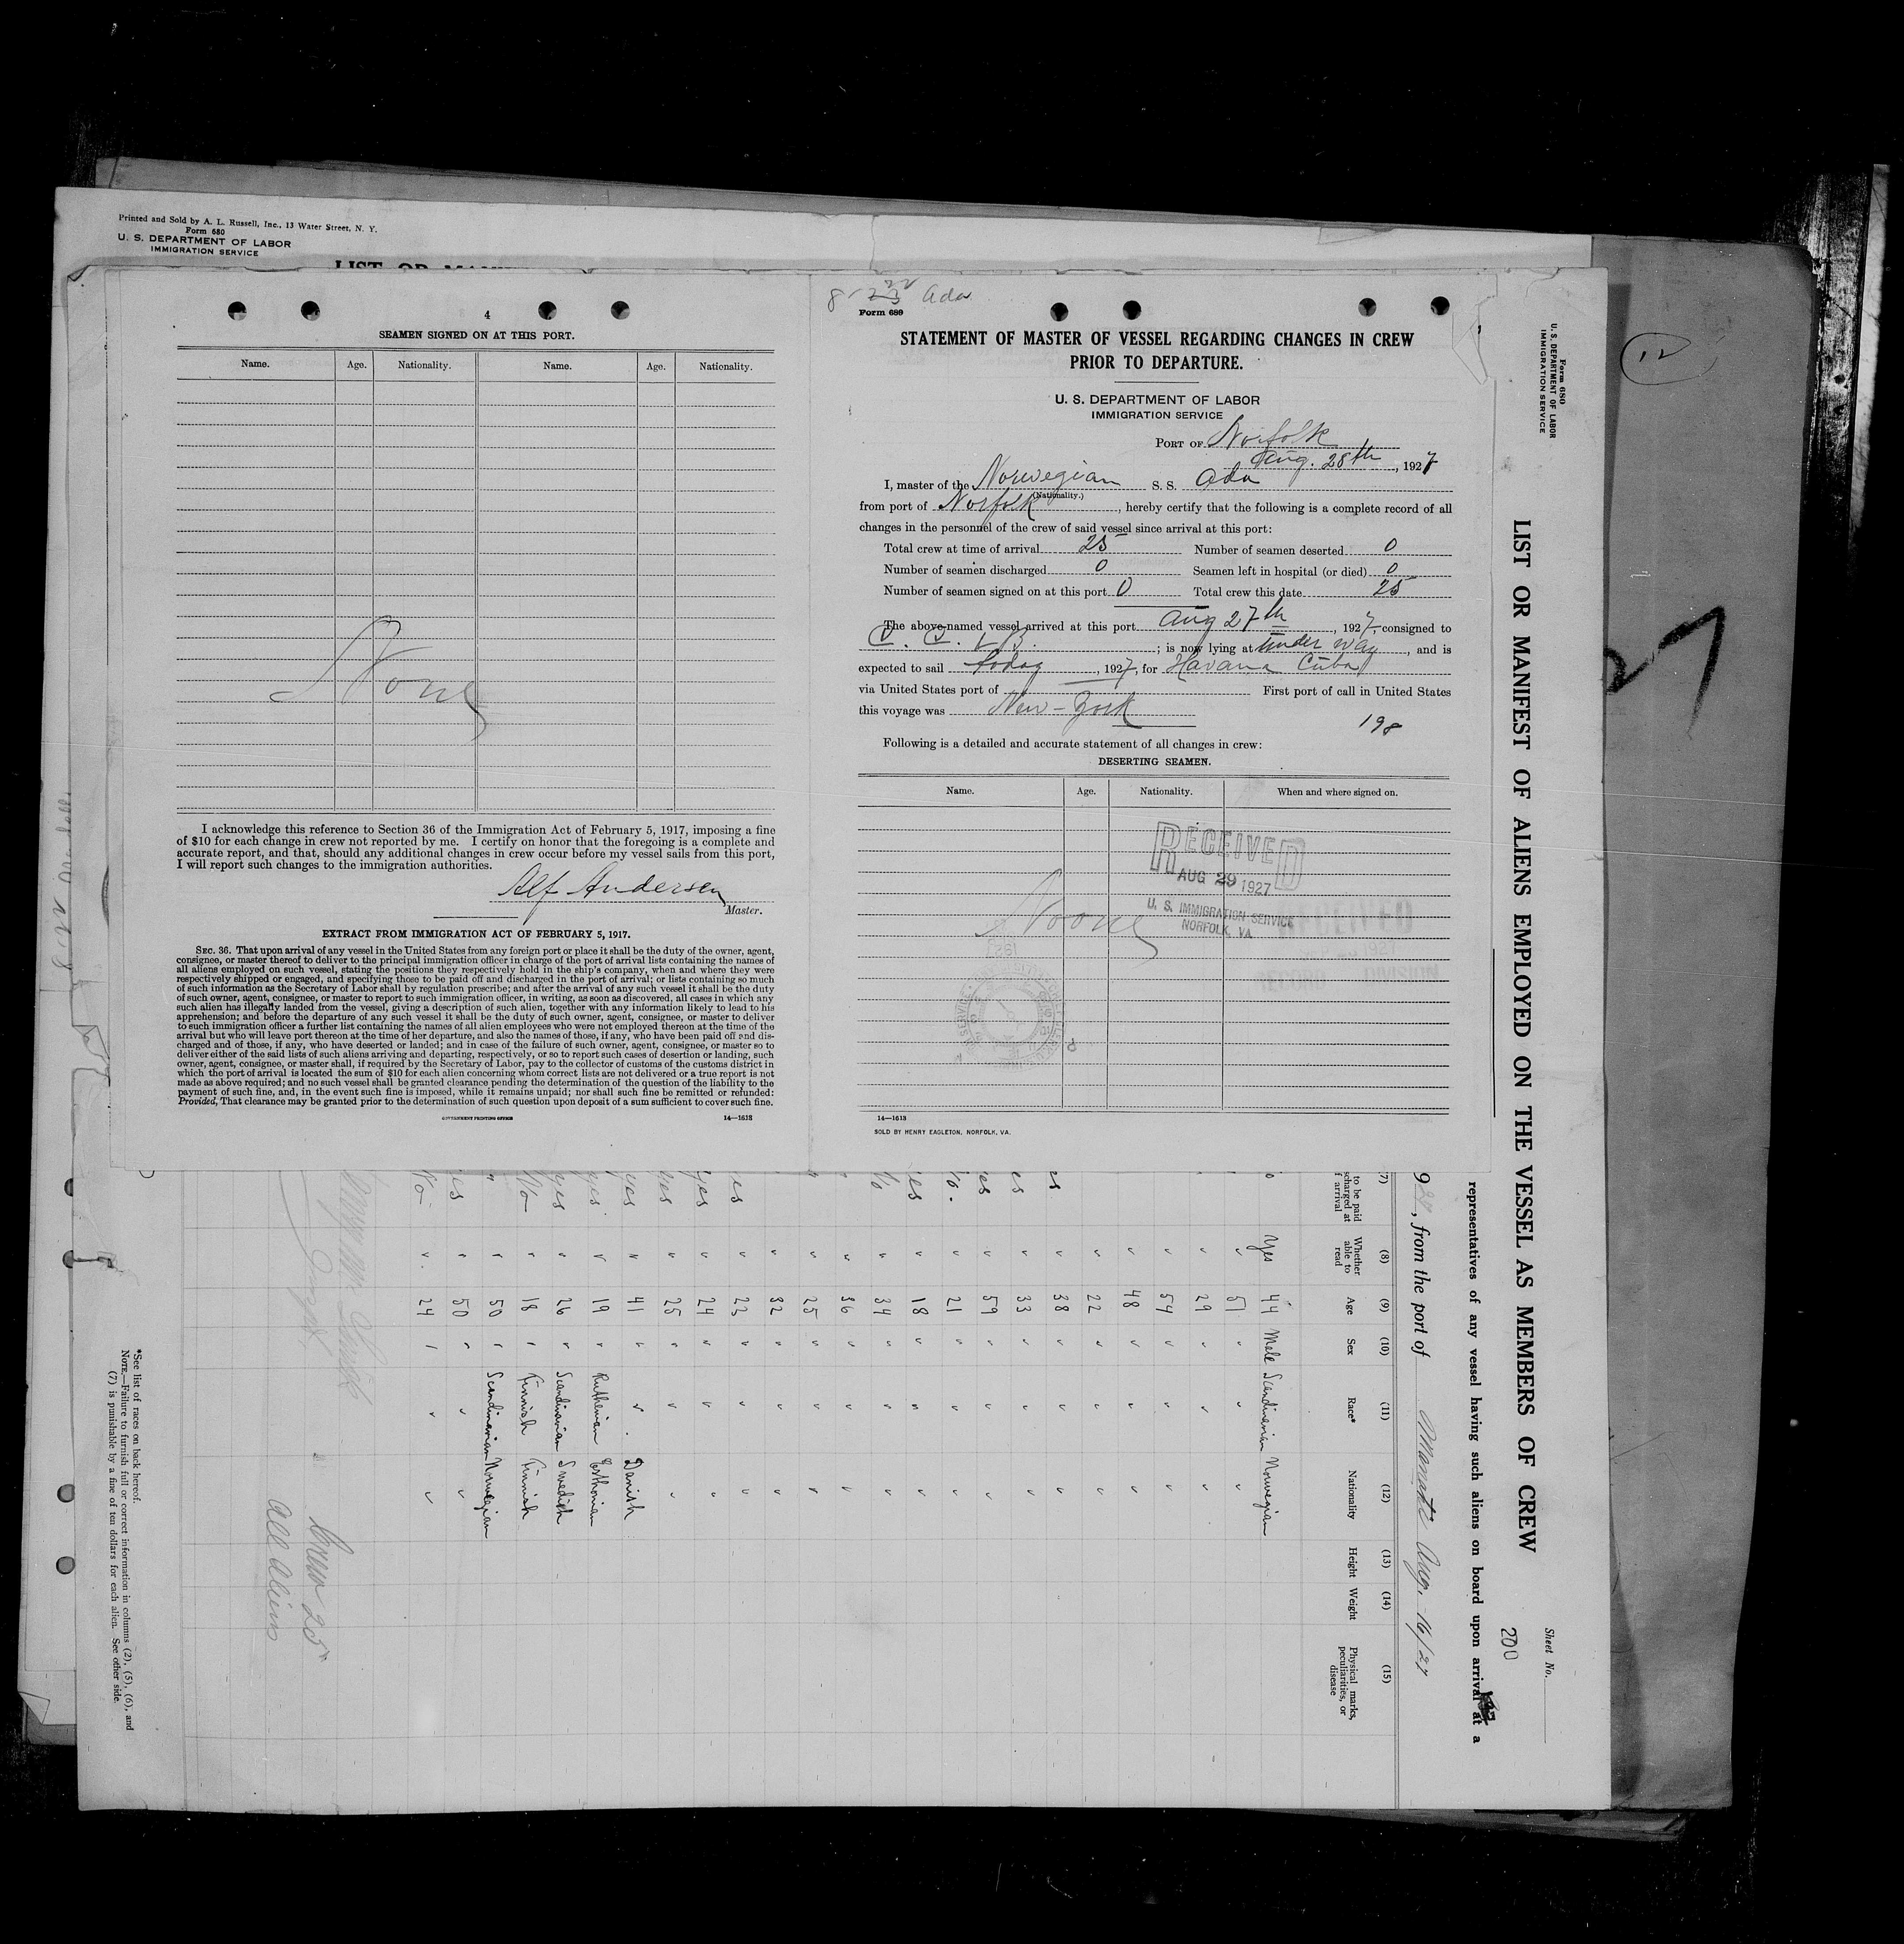 Printed and Sold by A. L. Russell, Inc., 13 Water Street, N. Y.
Form 680
U. S. DEPARTMENT OF LABOR
IMMIGRATION SERVICE
4
SEAMEN SIGNED ON AT THIS PORT.
Name. Age. Nationality. Name. Age. Nationality.
None
I acknowledge this reference to Section 36 of the Immigration Act of February 5, 1917, imposing a fine
of $10 for each change in crew not reported by me. I certify on honor that the foregoing is a complete and
accurate report, and that, should any additional changes in crew occur before my vessel sails from this port,
I will report such changes to the immigration authorities.
Alf Andersen
Master.
EXTRACT FROM IMMIGRATION ACT OF FEBRUARY 5, 1917.
SEC. 36. That upon arrival of any vessel in the United States from any foreign port or place it shall be the duty of the owner, agent,
consignee, or master thereof to deliver to the principal immigration officer in charge of the port of arrival lists containing the names of
all aliens employed on such vessel, stating the positions they respectively hold in the ship's company, when and where they were
respectively shipped or engaged, and specifying those to be paid off and discharged in the port of arrival; or lists containing so much
of such information as the Secretary of Labor shall by regulation prescribe; and after the arrival of any such vessel it shall be the duty
of such owner, agent, consignee, or master to report to such immigration officer, in writing, as soon as discovered, all cases in which any
such alien has illegally landed from the vessel, giving a description of such alien, together with any information likely to lead to his
apprehension; and before the departure of any such vessel it shall be the duty of such owner, agent, consignee, or master to deliver
to such immigration officer a further list containing the names of all alien employees who were not employed thereon at the time of the
arrival but who will leave port thereon at the time of her departure, and also the names of those, if any, who have been paid off and dis-
charged and of those, if any, who have deserted or landed; and in case of the failure of such owner, agent, consignee, or master so to
deliver either of the said lists of such aliens arriving and departing, respectively, or so to report such cases of desertion or landing, such
owner, agent, consignee, or master shall, if required by the Secretary of Labor, pay to the collector of customs of the customs district in
which the port of arrival is located the sum of $10 for each alien concerning whom correct lists are not delivered or a true report is not
made as above required; and no such vessel shall be granted clearance pending the determination of the question of the liability to the
payment of such fine, and, in the event such fine is imposed, while it remains unpaid; nor shall such fine be remitted or refunded:
Provided, That clearance may be granted prior to the determination of such question upon deposit of a sum sufficient to cover such fine.
GOVERNMENT PRINTING OFFICE 14—1613
Ada
Form 689
STATEMENT OF MASTER OF VESSEL REGARDING CHANGES IN CREW
PRIOR TO DEPARTURE.
U. S. DEPARTMENT OF LABOR
IMMIGRATION SERVICE
PORT OF Norfolk
Aug. 28th, 1927
I, master of the Norwegian S. S. Ada
(Nationality.)
from port of Norfolk, hereby certify that the following is a complete record of all
changes in the personnel of the crew of said vessel since arrival at this port:
Total crew at time of arrival 25 Number of seamen deserted 0
Number of seamen discharged 0 Seamen left in hospital (or died) 0
Number of seamen signed on at this port 0 Total crew this date 25
The above-named vessel arrived at this port Aug 27th, 1927, consigned to
; is now lying at under way, and is
expected to sail today, 1927, for Havana Cuba
via United States port of First port of call in United States
this voyage was New-York
198
Following is a detailed and accurate statement of all changes in crew:
DESERTING SEAMEN.
Name. Age. Nationality. When and where signed on.
RECEIVED
AUG 29 1927
U. S. IMMIGRATION SERVICE
NORFOLK, VA.
RECEIVED
RECORD DIVISION
None
14—1613
SOLD BY HENRY EAGLETON, NORFOLK, VA.
12
27
Form 680
U. S. DEPARTMENT OF LABOR
IMMIGRATION SERVICE
LIST OR MANIFEST OF ALIENS EMPLOYED ON THE VESSEL AS MEMBERS OF CREW
Sheet No.
200
representatives of any vessel having such aliens on board upon arrival at a
, from the port of Aug. 16/27
(7) (8) (9) (10) (11) (12) (13) (14) (15)
to be paid
Whether able to read Age Sex Race* Nationality Height Weight Physical marks, peculiarities, or disease
Yes 44 Male Scandinavian Norwegian
" 51 " " "
" 29 " " "
" 54 " " "
" 48 " " "
" 22 " " "
" 38 " " "
" 33 " " "
" 59 " " "
" 21 " " "
" 18 " " "
" 34 " " "
" 36 " " "
" 25 " " "
" 32 " " "
" 23 " " "
" 24 " " "
" 25 " " "
yes " 41 " " Danish
yes " 19 " Ruthenian Esthonian
yes " 26 " Scandinavian Swedish
No " 18 " Finnish Finnish
" " 50 " Scandinavian Norwegian
" 50 " " "
No " 24 " " "
Crew 25
All Aliens
*See list of races on back hereof.
NOTE.—Failure to furnish full or correct information in columns (2), (5), (6), and
(7) is punishable by a fine of ten dollars for each alien. See other side.